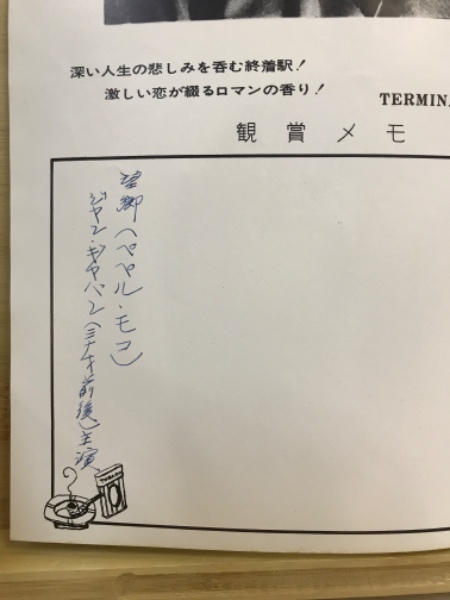 深い人生の悲しみを呑む終着駅！
激しい恋が綴るロマンの香り！
TERMINA
観賞メモ
望郷（ペペル・モコ）
ジャン・ギャバン（ミナオ前後）主演